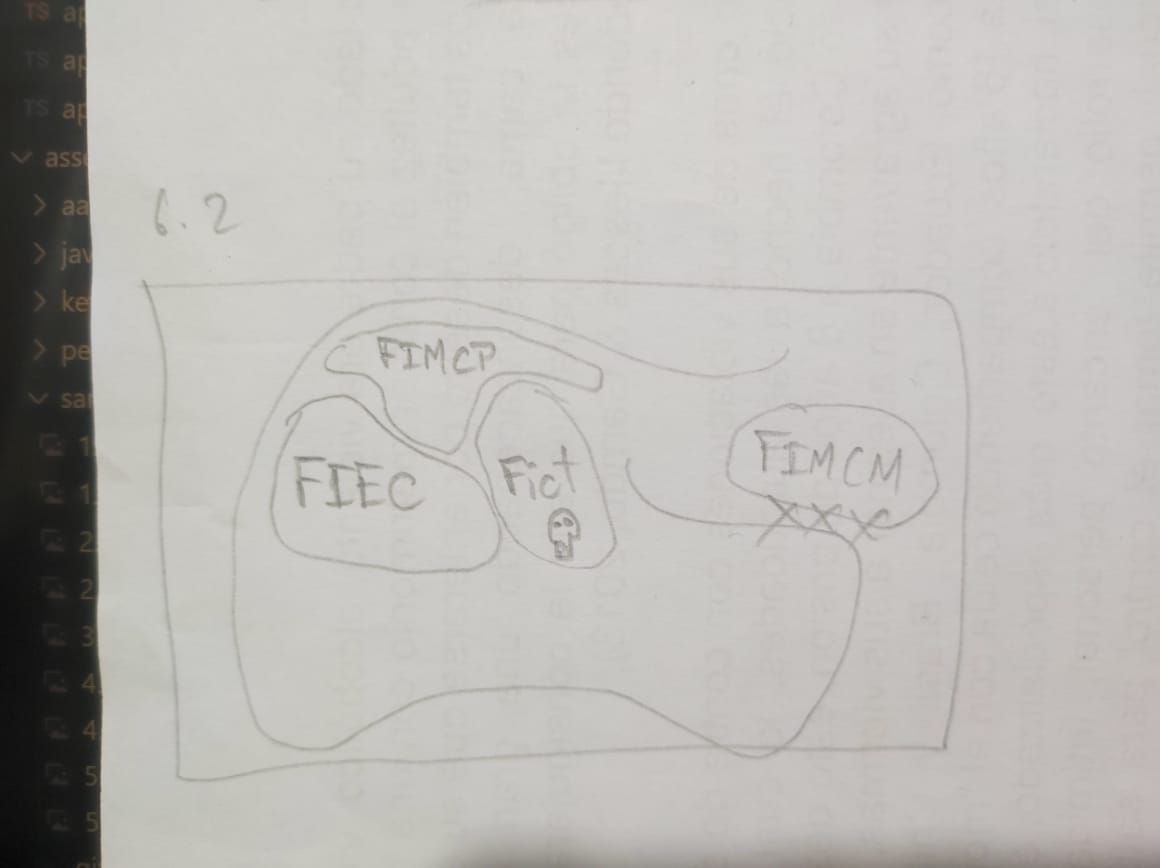 TS ap
TS ap
TS ap
asse
aa
jav
ke
pe
sar
1
1
2
2
3
4
4
5
5
6.2
FIMCP
FIEC
Fict
FIMCM
XXX